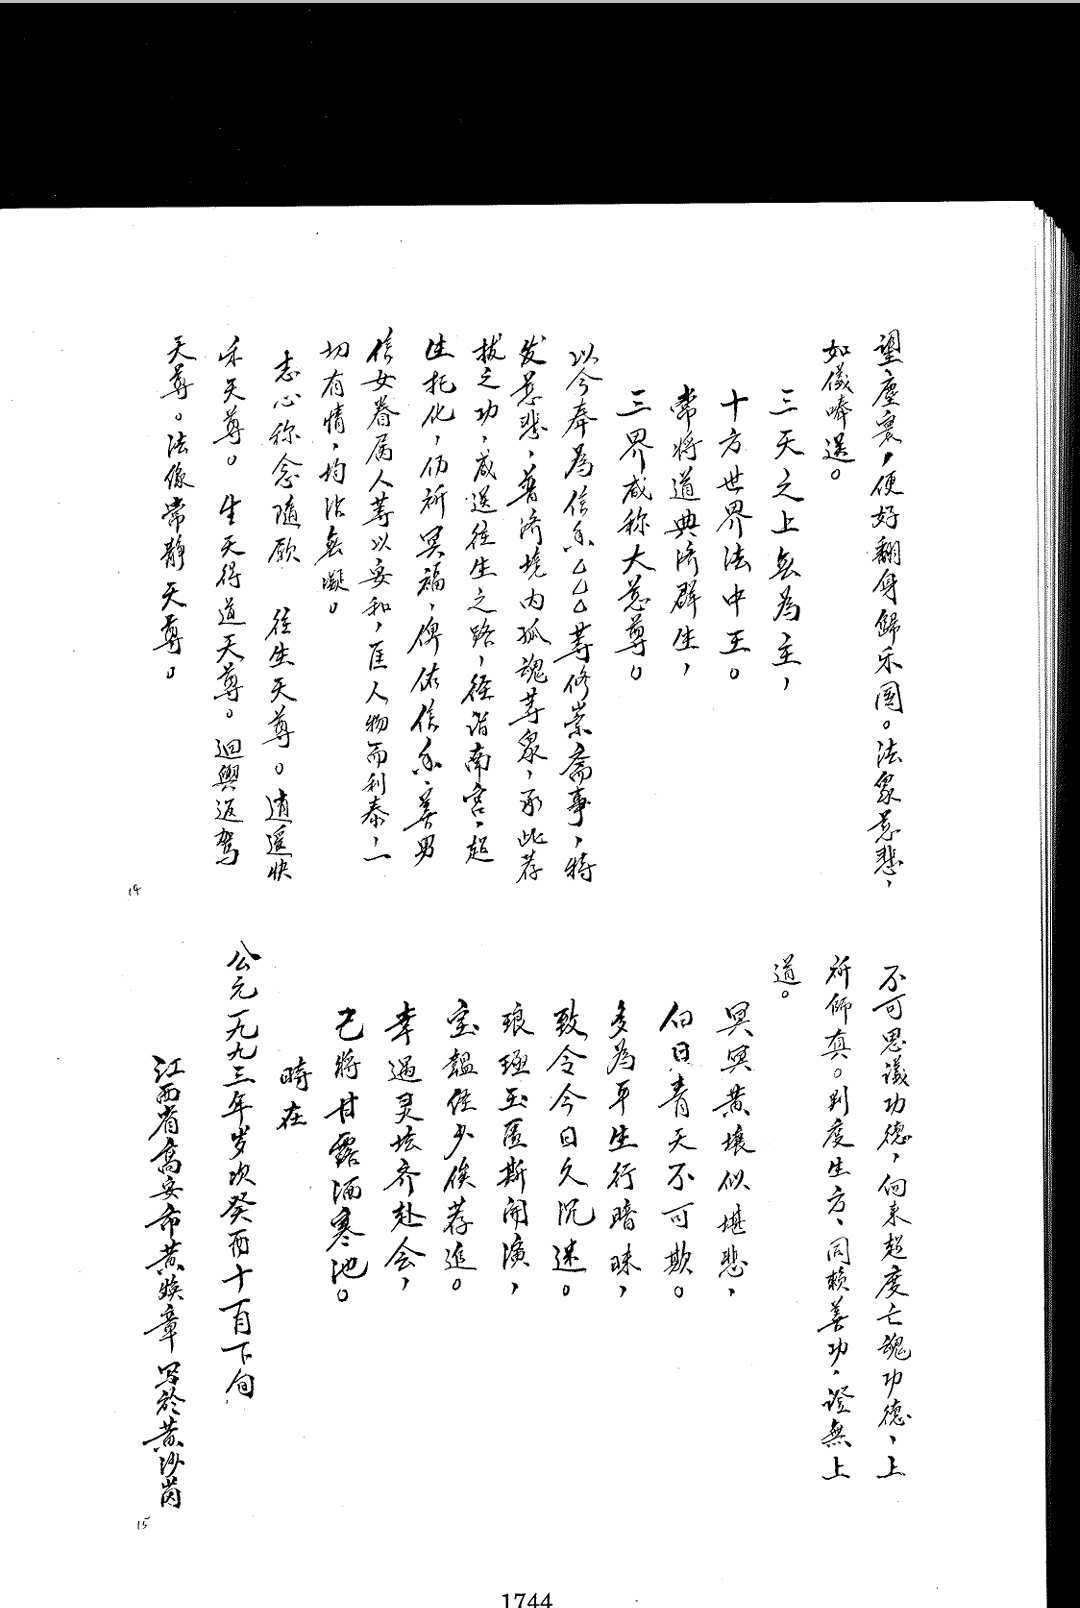 望尘寰，便好翻身歸乐國。法众慈悲，
如儀奉送。
三天之上無為主，
十方世界法中王。
常将道典济群生，
三界咸称大慈尊。
以今奉為信士△△△等修崇斋事，特
发慈悲，普济境内孤魂等众，承此荐
拔之功，咸送往生之路，径诣南宫，超
生托化，仍祈冥福，俾佑信士、善男
信女眷属人等以安和，匡人物而利泰，一
切有情，均沾無凝。
志心称念隨願　往生天尊。逍遥快
乐天尊。生天得道天尊。迴輿返駕
天尊。法像常静天尊。
14
不可思議功德，向来超度亡魂功德，上
祈师真。列度生方，同赖善功，證無上
道。
冥冥黄壤似堪悲，
白日青天不可欺。
多為平生行暗昧，
致令今日久沉迷。
琅函玉匮斯闻演，
宝韞侄少俟荐進。
幸遇灵坛齐赴会，
已將甘露洒寒池。
時在
公元一九九三年岁次癸酉十一月下旬
江西省高安市黄焕章写於黄沙茵
15
1744